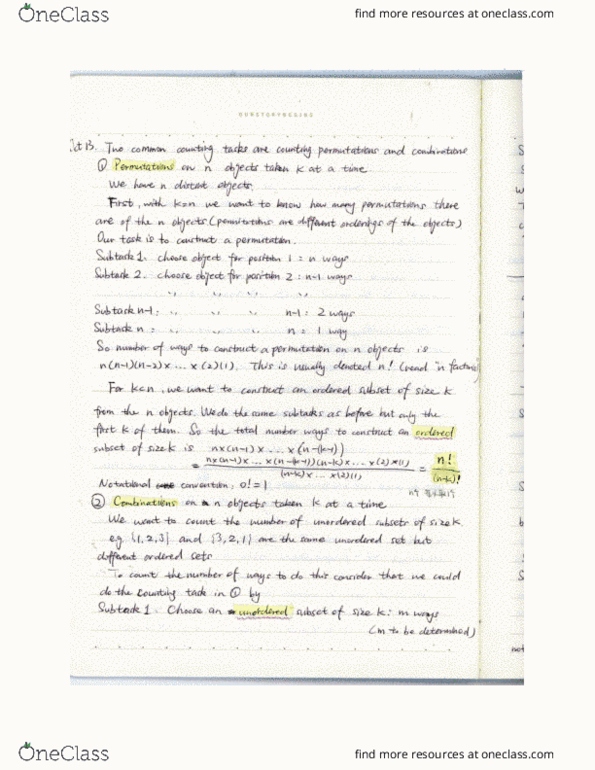 OneClass
find more resources at oneclass.com
Oct 13. Two common counting tasks are counting permutations and combinations
① Permutations on n objects taken k at a time
We have n distinct objects.
First, with k=n we want to know how many permutations there
are of the n objects (permutations are different orderings of the objects)
Our task is to construct a permutation.
Subtask 1. choose object for position 1 = n ways
Subtask 2. choose object for position 2 : n-1 ways
Subtask n-1: n-1: 2 ways
Subtask n: n = 1 way
So number of ways to construct a permutation on n objects is
n(n-1)(n-2)x...x(2)(1). This is usually denoted n! (read "n factorial")
For k<n, we want to construct an ordered subset of size k
from the n objects. We do the same subtasks as before but only the
first k of them. So the total number ways to construct an ordered
subset of size k is n×(n-1)×...×(n-(k-1))
= n×(n-1)×...×(n-(k-1))(n-k)×...×(2)×(1) / (n-k)×...×(2)(1) = n! / (n-k)!
Notational convention: 0! = 1
② Combinations on n objects taken k at a time
We want to count the number of unordered subsets of size k
e.g. {1,2,3} and {3,2,1} are the same unordered set but
different ordered sets
To count the number of ways to do this consider that we could
do the counting task in ① by
Subtask 1. Choose an unordered subset of size k: m ways
(m to be determined)
OneClass
find more resources at oneclass.com